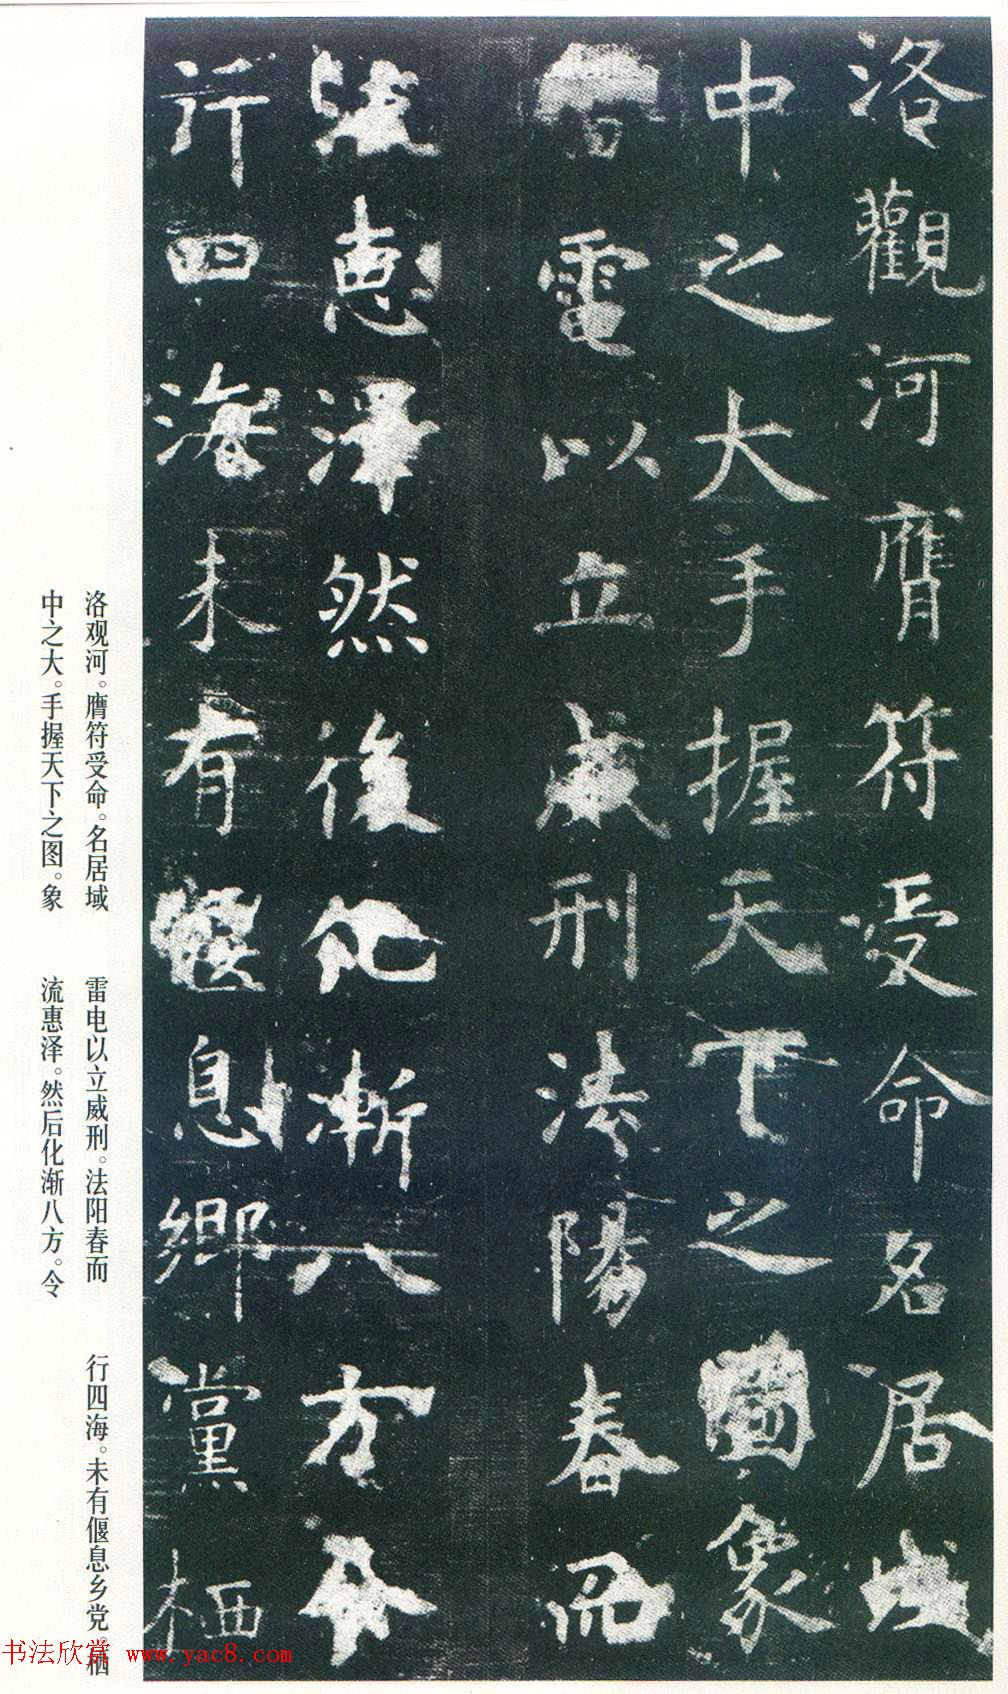 洛觀河膺符受命名居域
中之大手握天下之圖象
雷電以立威刑法陽春而
流惠澤然後化漸八方令
行四海未有偃息鄉黨栖
洛观河。膺符受命。名居域
中之大。手握天下之图。象
雷电以立威刑。法阳春而
流惠泽。然后化渐八方。令
行四海。未有偃息乡党。栖
书法欣赏 www.yac8.com